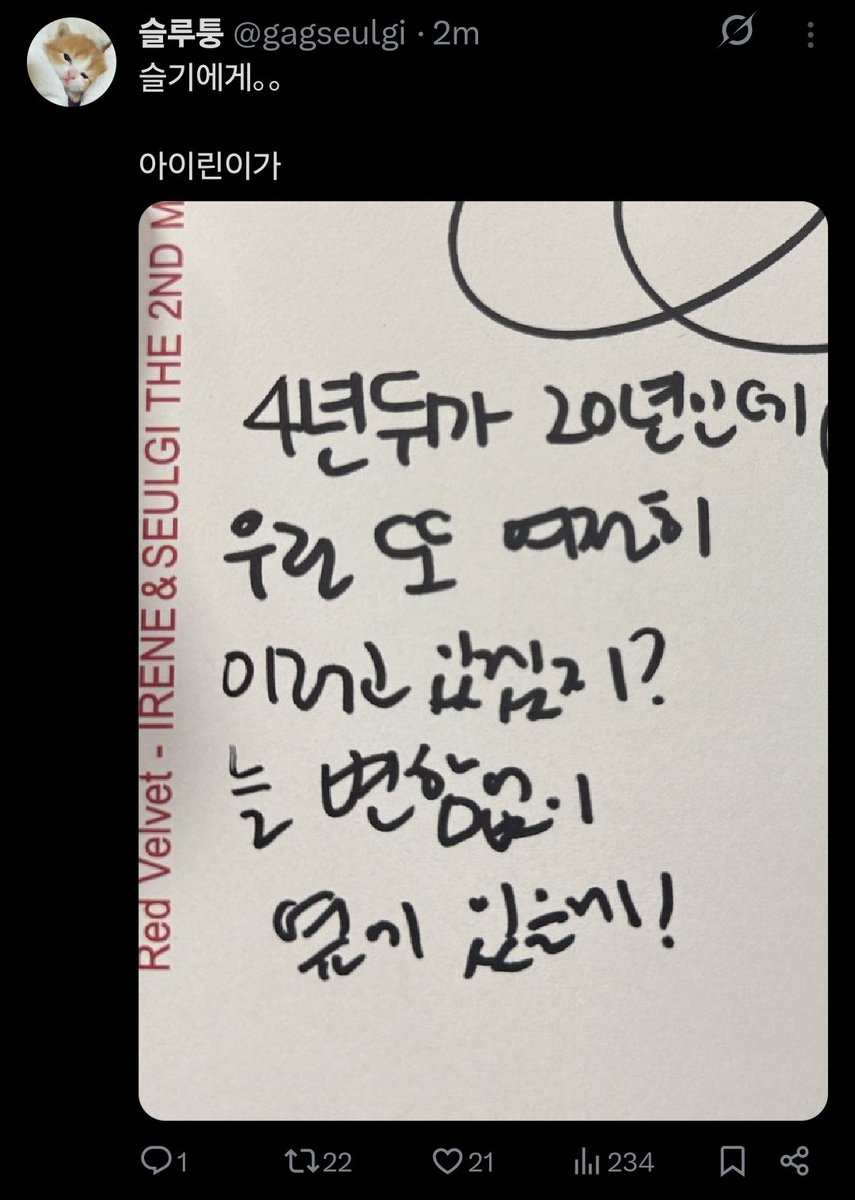 슬루퉁 @gagseulgi · 2m
슬기에게｡｡
아이린이가
Red Velvet - IRENE & SEULGI THE 2ND M
4년뒤가 20년인데
우린 또 여전히
이러고 있겠지?
늘 변함없이
옆에 있을게!
1 22 21 234